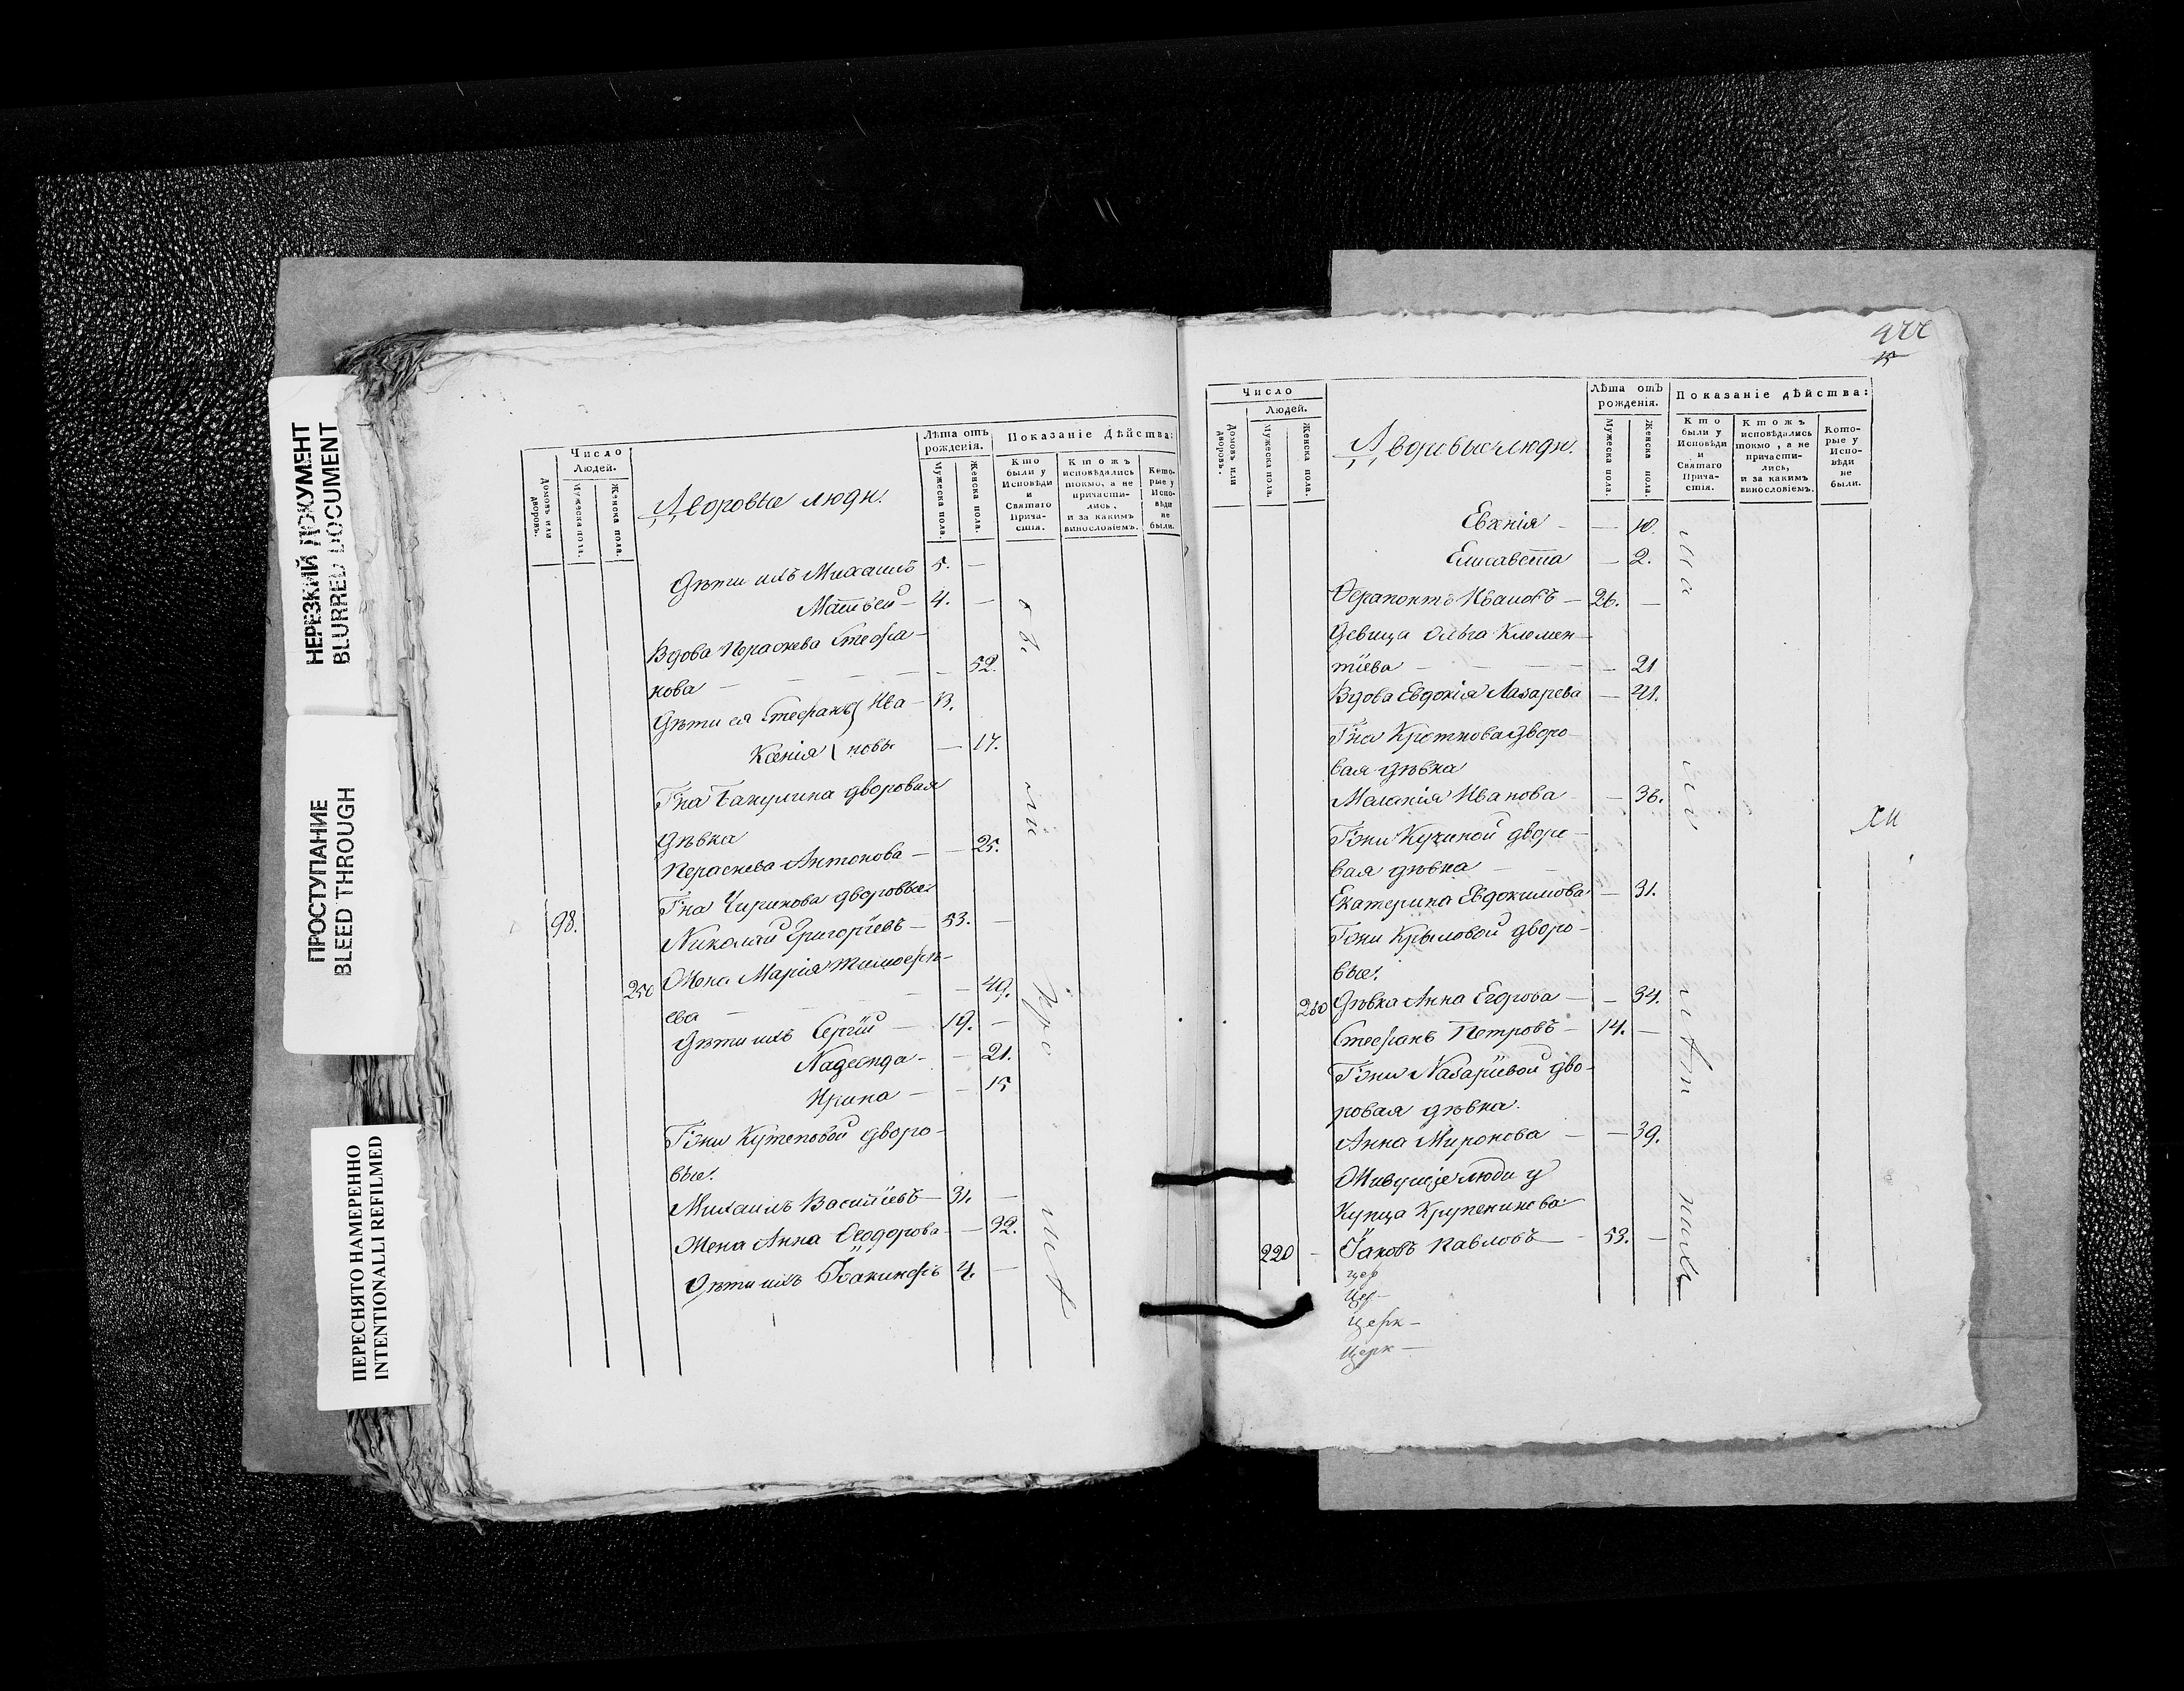 НЕРЕЗКИЙ ДОКУМЕНТ
BLURRED DOCUMENT
ПРОСТУПАНИЕ
BLEED THROUGH
ПЕРЕСНЯТО НАМЕРЕННО
INTENTIONALLI REFILMED
Число
Людей.
Домовъ или дворовъ.
Мужеска пола.
Женска пола.
Дворовые люди.
Лѣта отъ рожденія.
Мужеска пола.
Женска пола.
Показаніе Дѣйства:
Кто были у Исповѣди и Святаго Причастія.
Ктожъ исповѣдались токмо, а не причастились, и за какимъ винословіемъ.
Которые у Исповѣди не были.
Дѣти ихъ Михаилъ 5. —
Матвѣй — 4. —
Вдова Параскева Стефа-
нова — — — — 52.
Дѣти ея Стефанъ } Ива — 13.
Ксенія } новы — 17.
Гна Бакунина дворовая
дѣвка
Параскева Антонова — — 25.
Гна Чирикова дворовые:
98. Николай Григоріевъ — 53. —
250 Жена Марія Тимофѣ-
ева — — — — 49.
Дѣти ихъ Сергій — 19. —
Надежда — — 21.
Ирина — — 15
Гжи Кутеповой дворо-
вые:
Михаилъ Василіевъ — 31. —
Жена Анна Феодорова — — 32.
Дѣти ихъ Іоакинфъ 4. —
422
15
Число
Людей.
Домовъ или дворовъ.
Мужеска пола.
Женска пола.
Дворовые люди.
Лѣта отъ рожденія.
Мужеска пола.
Женска пола.
Показаніе дѣйства:
Кто были у Исповѣди и Святаго Причастія.
Ктожъ исповѣдались токмо, а не причастились, и за какимъ винословіемъ.
Которые у Исповѣди не были.
Евгнія — — 10.
Елисавета — 2.
Ферапонтъ Ивановъ — 26. —
Девица Ольга Климен-
тіева — — — — — 21
Вдова Евдокія Лазарева — 41.
Гна Кроткова дворо-
вая дѣвка
Маланія Иванова — 36.
Гжи Кузиной дворо-
вая дѣвка — —
Екатерина Евдокимова — 31.
Гжи Крыловой дворо-
вые:
260 Дѣвка Анна Егорова — — 34.
Стефанъ Петровъ — 14. —
Гжи Назаріевой дво-
ровая дѣвка.
Анна Миронова — — 39.
Живущіе люди у
купца Крупеникова
220 — Іаковъ Павловъ — 53. —
цер
Цер—
Церк—
Церк—